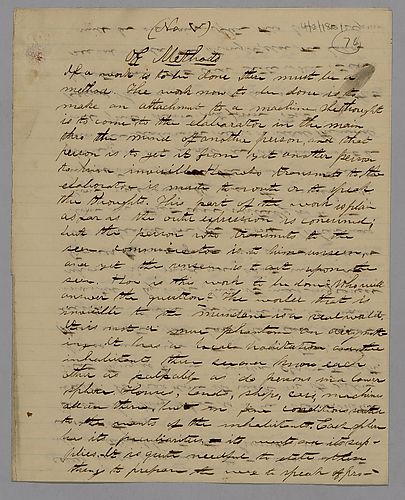 (No. 2)
(76)
Of Methods
If a work is to be done there must be a
method. The work now to be done is to
make an attachment to a machine. The thought
is to come to the elaborator in the man,
thro the mind of another person, and that
person is to get it from yet another person
to him invisible who transmits to the
elaborator is must to write or to speak
the thought. This part of the work is plain
as far as the outer expression is concerned;
but the person who transmits to the
seen communicator is to him unseen, &
and yet the unseen is to act upon the
seen. How is this work to be done? Who will
answer the question? The world that is
invisible to the mundane is a real world.
It is not a mere phantom an
It has a local habitation and the
inhabitants there know each
other as palpably as do persons in a lower
sphere. Houses, lands, ships, cars, machines
all are there, but in fine condition suited
to the wants of the inhabitants. Each sphere
has its peculiarities its wants and its sup-
plies. It is quite needful to state these
things to prepare the way to speak of pro-